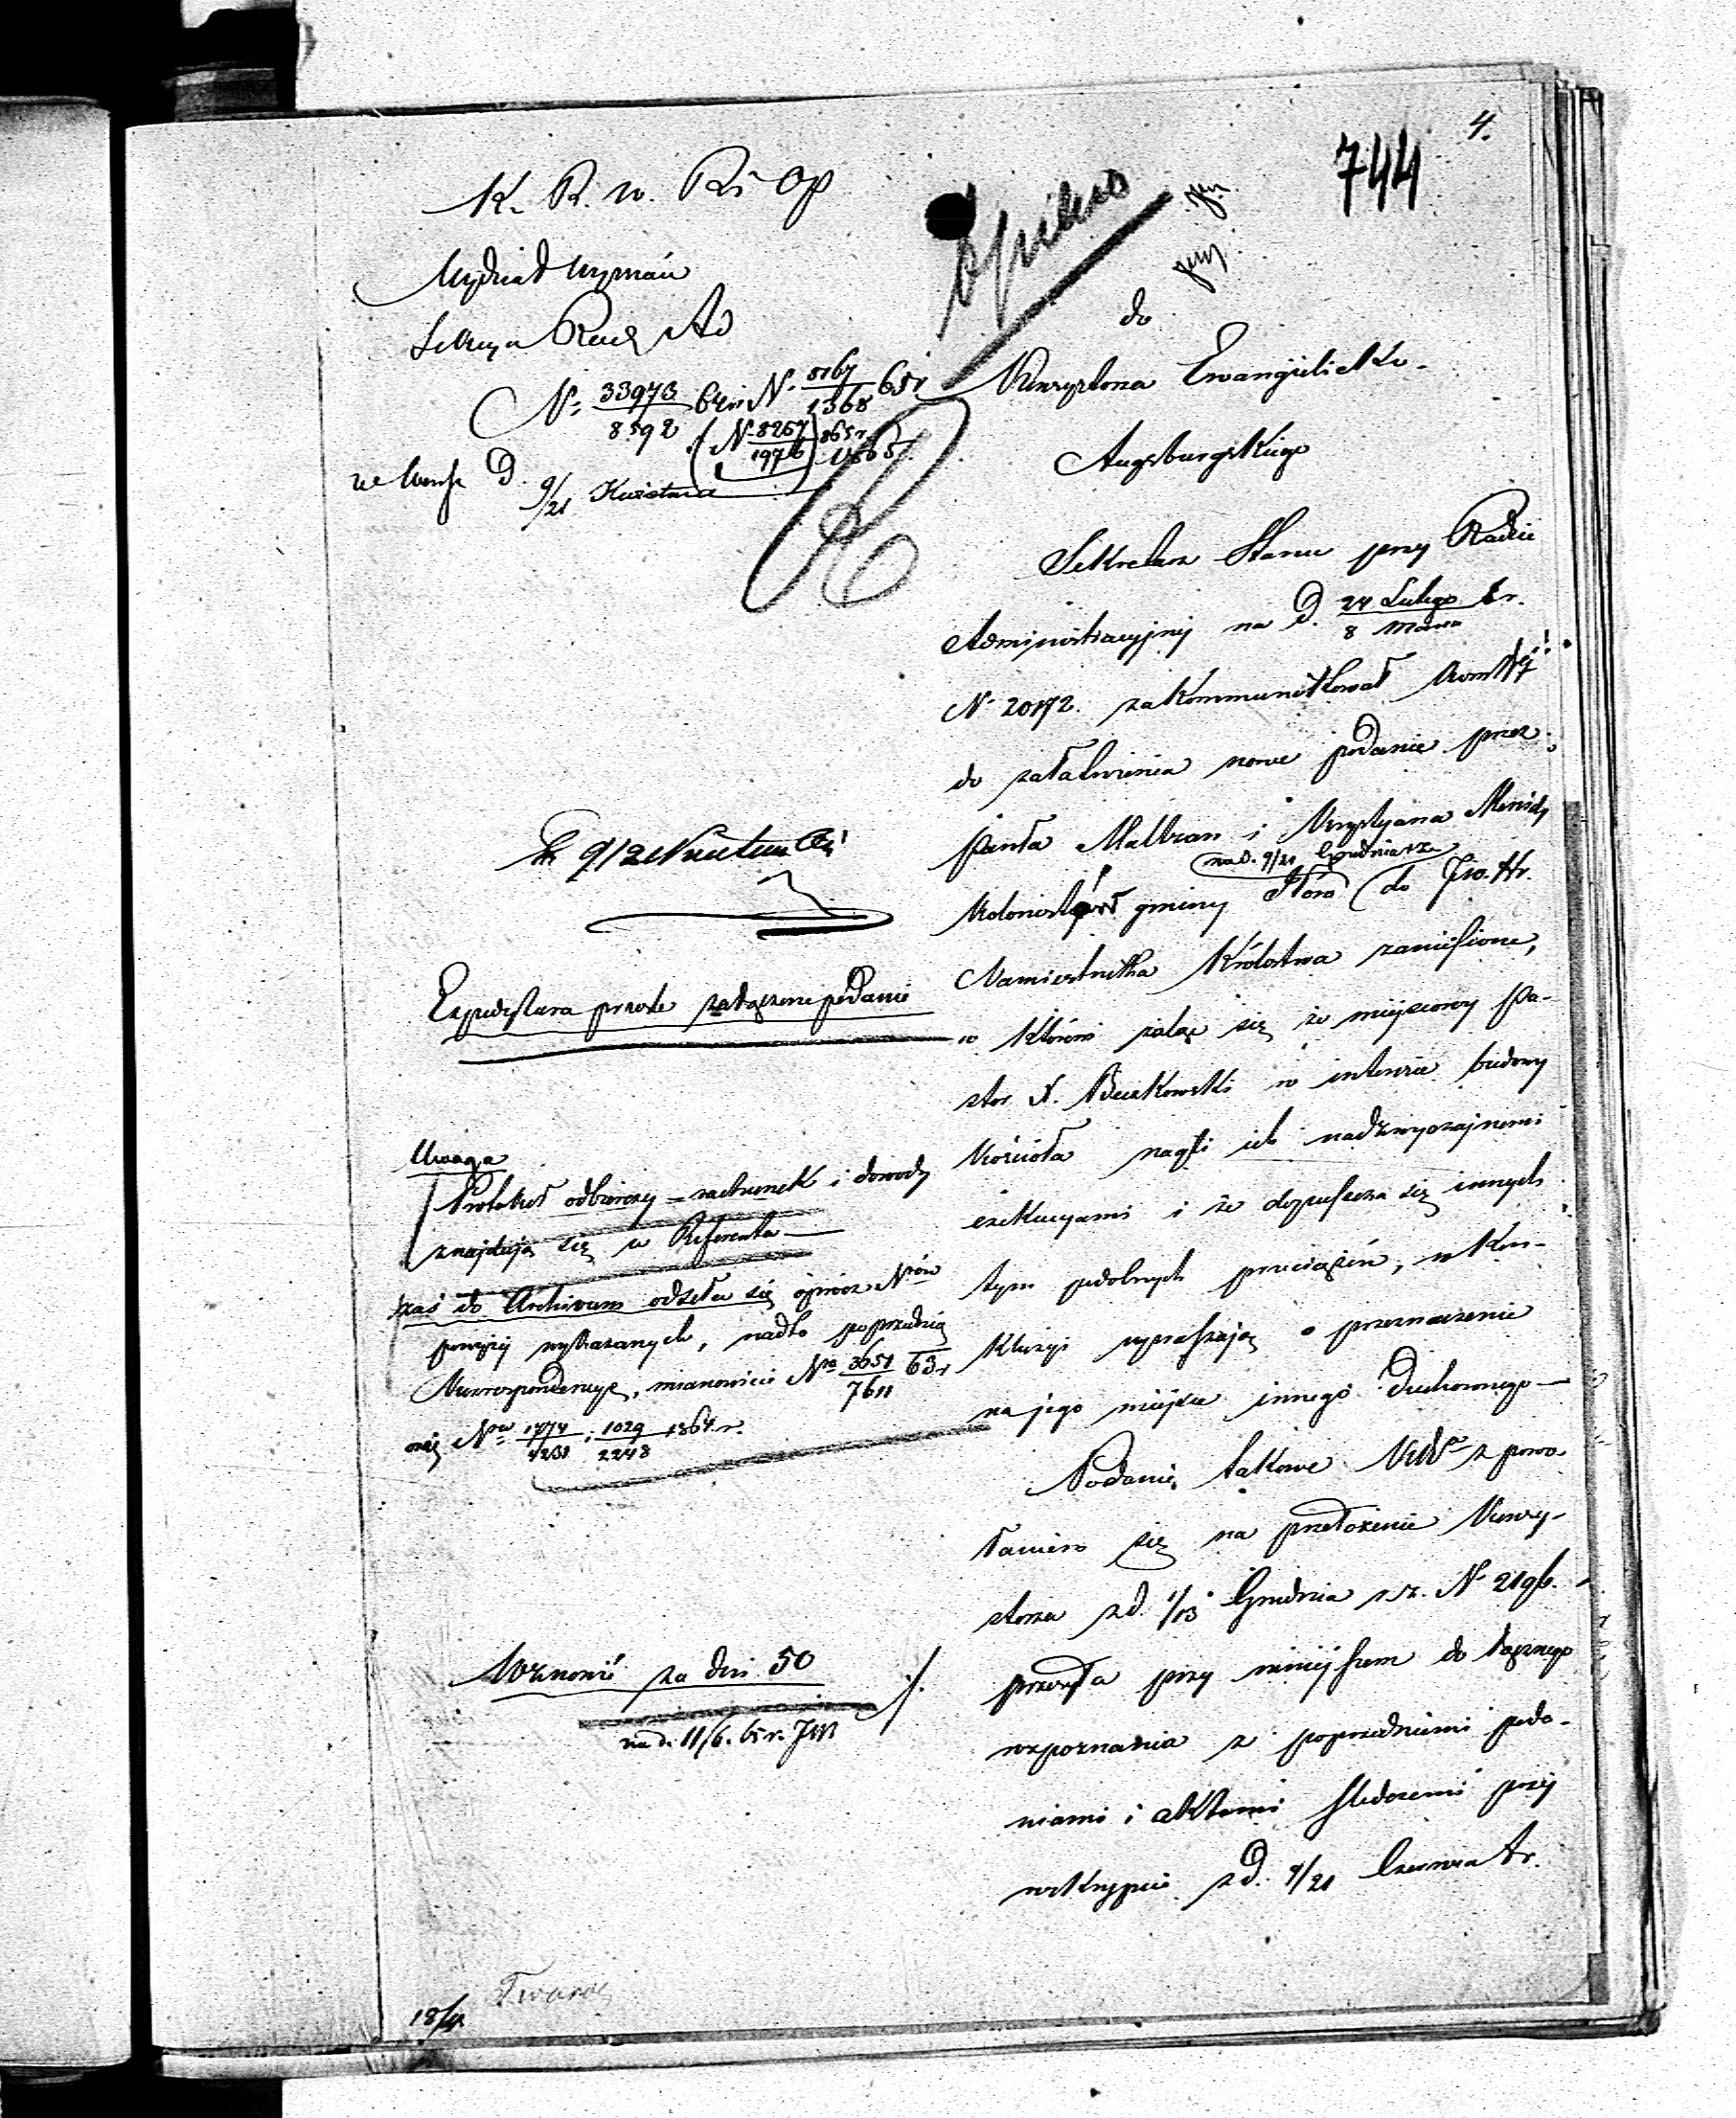 4.
744
K. R. w. Rż Op
Wydział Wyznań
Sekcya
N. 33973/8592 64r. N. 5167/1368 65r
(N. 8267/1976) 865 r.
D. 9/21 Kwietnia
do
Konsystorza Ewangielicko-
Augsburgskiego
Sekretarz Stanu przy Radzie
Administracyjnej na D. 24 Lutego / 8 Marca b.r.
N. 20172. zakommunikował
do załatwienia nowe podanie przez
Pawła Malbran i Krystyana
na d. 9/21 Grudnia r.z.
Kolonistów gminy do Jw. Hr.
Namiestnika Królestwa zaniesione,
w którem żalą się że miejscowy Pa-
stor X. w interesie budowy
kościoła nagli ich nadzwyczajnemi
exekucyami i że dopuszcza się innych
tym podobnych przeciążeń, w kon-
kluzyi upraszają o przeznaczenie
na jego miejsce innego Duchownego —
Podanie takowe z powo-
łaniem się na przełożenie Konsy-
storza z d. 1/13 Grudnia r.z. N. 2196.
przesyła przy niniejszem do łącznego
rozpoznania z poprzedniemi poda-
niami i aktami śledczemi przy
reskrypcie z d. 9/21 Czerwca
9/21 Kwietnia
Expedytura prześle załączone podanie
Uwaga
Protokół odbiorczy = rachunek i dowody
znajdują się u Referenta —
zaś do Archiwum odseła się oprócz Nrów
powyżej wykazanych, nadto poprzednią
Korrespondencye, mianowicie Nra 3651/7611 63r
oraz Nra 1774/4231; 1029/2248 1864 r.
Wznowić za dni 50
na d. 11/6. 65 r.
18/4